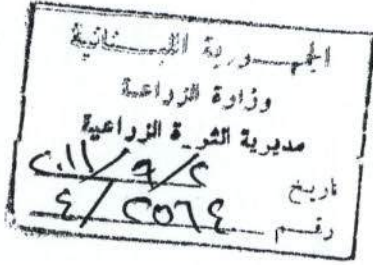 الجمهورية اللبنانية
وزارة الزراعة
مديرية الثروة الزراعية
تاريخ ٢/٩/٢٠١١
رقم ٢٥٦٤/٤